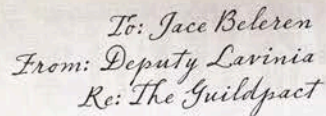 To: Jace Beleren
From: Deputy Lavinia
Re: The Guildpact